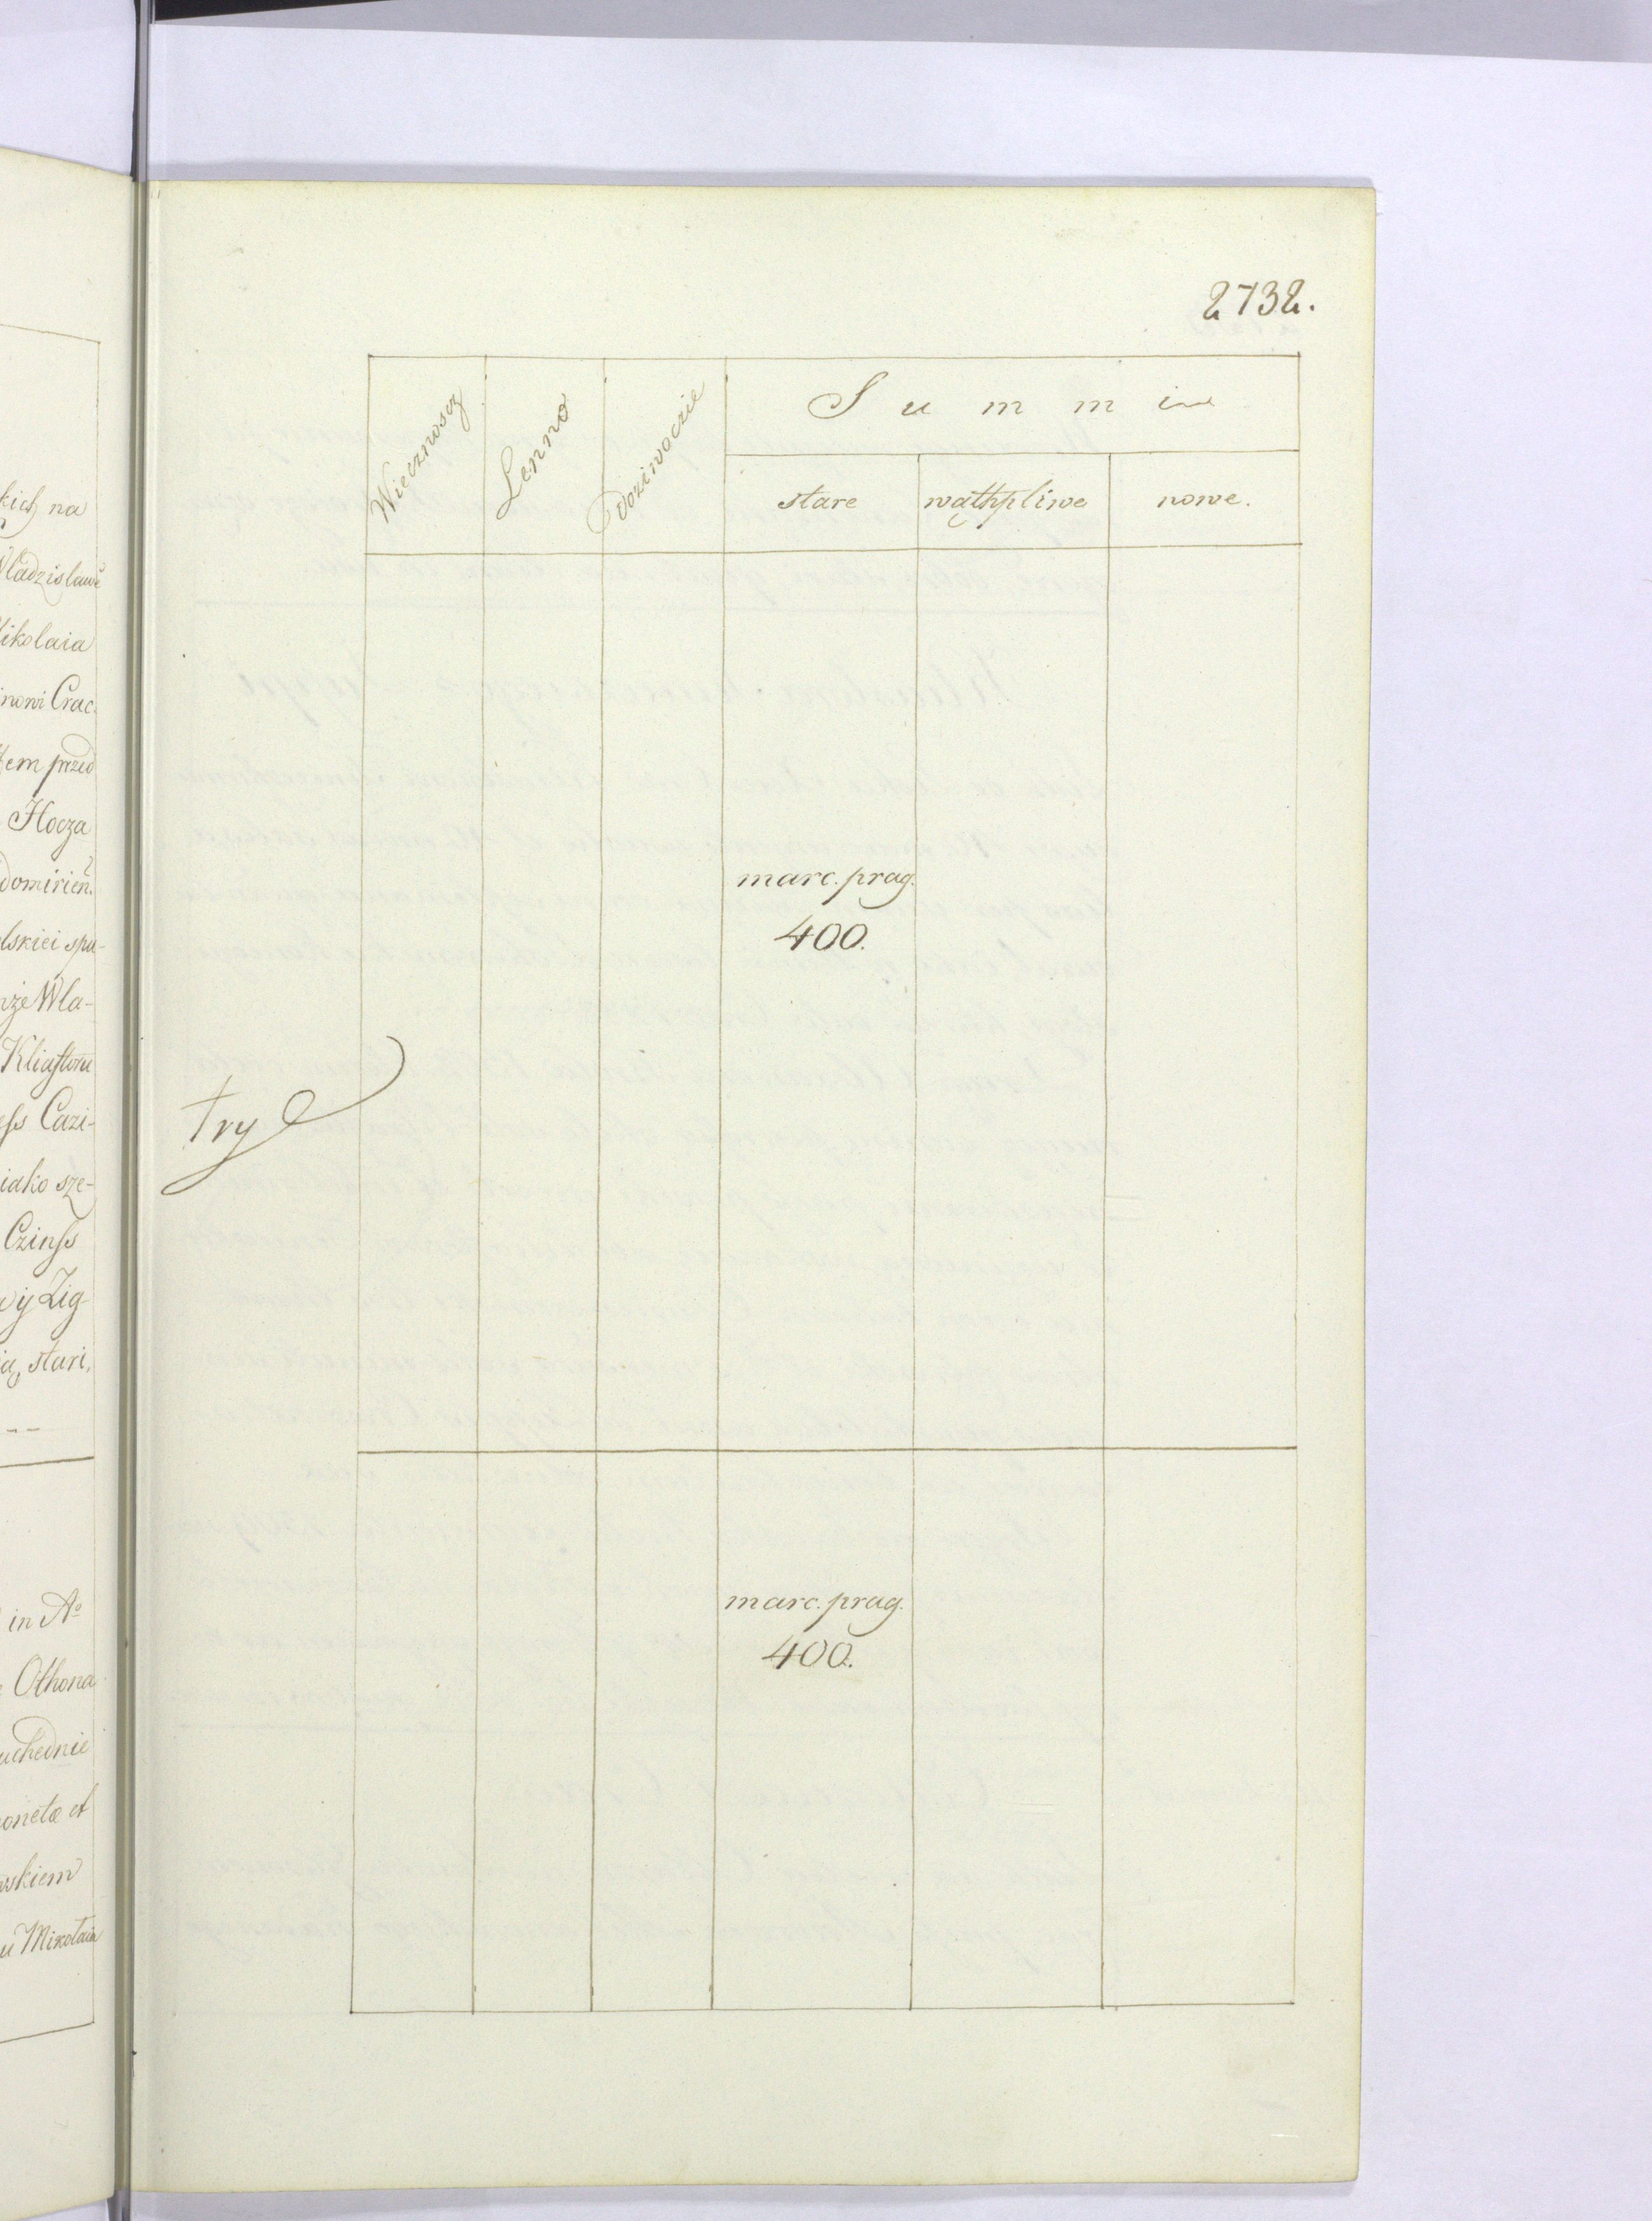 kich na
Vladzislawe
ikolaia
nowi Crac.
tem przed
Hocza
domirien.
lskiei spu-
nże Wla-
Kliasztoru
Cazi-
iako sze-
Czinss
Zig-
stari.
in Aº
Othona
uchednie
onetæ et
wskiem
u Mikołaia
2732.
Wiecznoscz
Lenno
Doziwoczie
Summi
stare
wąthpliwe
nowe.
marc. prag.
400.
try
marc. prag.
400.